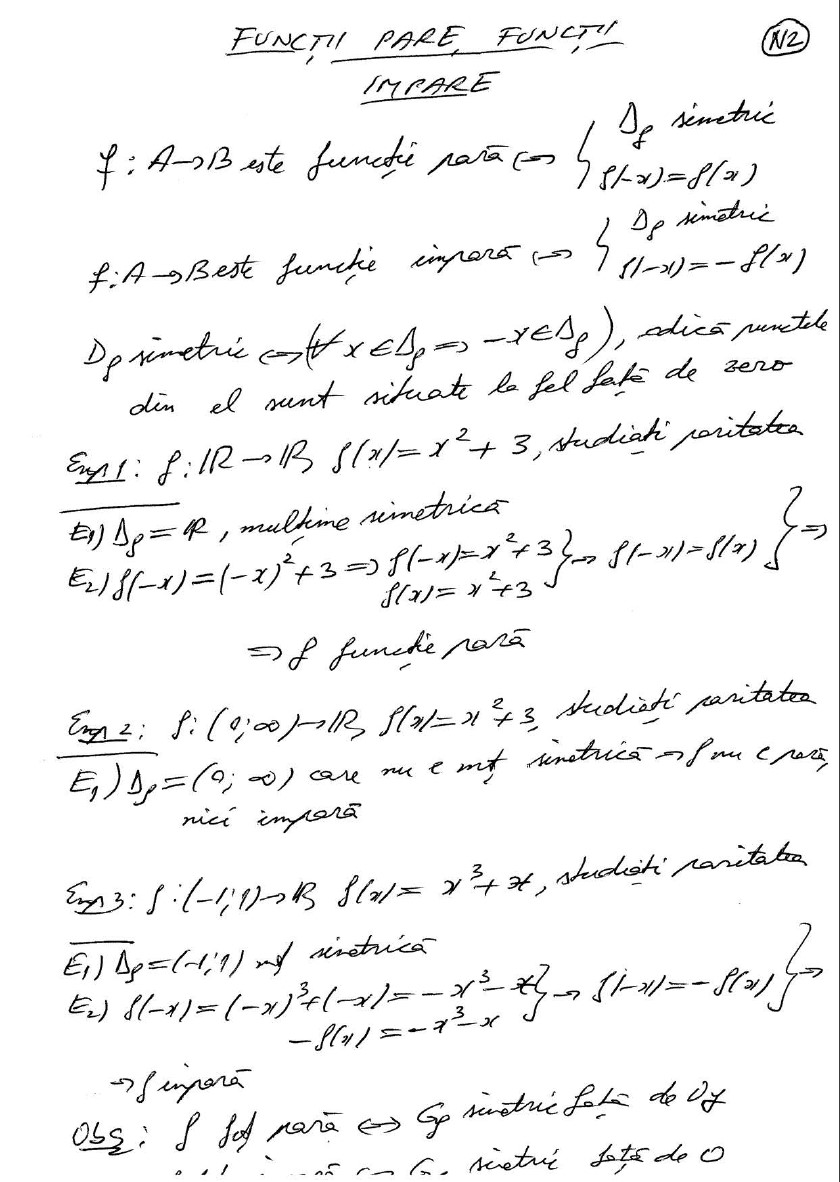 FUNCȚII PARE, FUNCȚII
N2
IMPARE
f: A→B este funcție pară ⇔ { D_f simetric
f(-x)=f(x)
f: A→B este funcție impară ⇔ { D_f simetric
f(-x)=-f(x)
D_f simetric ⇔ (∀ x∈D_f ⇒ -x∈D_f), adică punctele
din el sunt situate la fel față de zero
Exp1: f: ℝ→ℝ, f(x)=x²+3, studiați paritatea
E₁) D_f=ℝ, mulțime simetrică
E₂) f(-x)=(-x)²+3 ⇒ f(-x)=x²+3 } ⇒ f(-x)=f(x) } ⇒
f(x)=x²+3
⇒ f funcție pară
Exp 2: f: (0;∞)→ℝ, f(x)=x²+3, studiați paritatea
E₁) D_f=(0;∞) care nu e mț simetrică ⇒ f nu e pară,
nici impară
Exp 3: f: (-1;1)→ℝ, f(x)= x³+x, studiați paritatea
E₁) D_f=(-1;1) mț simetrică
E₂) f(-x)=(-x)³+(-x)=-x³-x } ⇒ f(-x)=-f(x) } ⇒
-f(x)=-x³-x
⇒ f impară
Obs: f fcț pară ⇔ G_f simetric față de Oy
simetric față de O